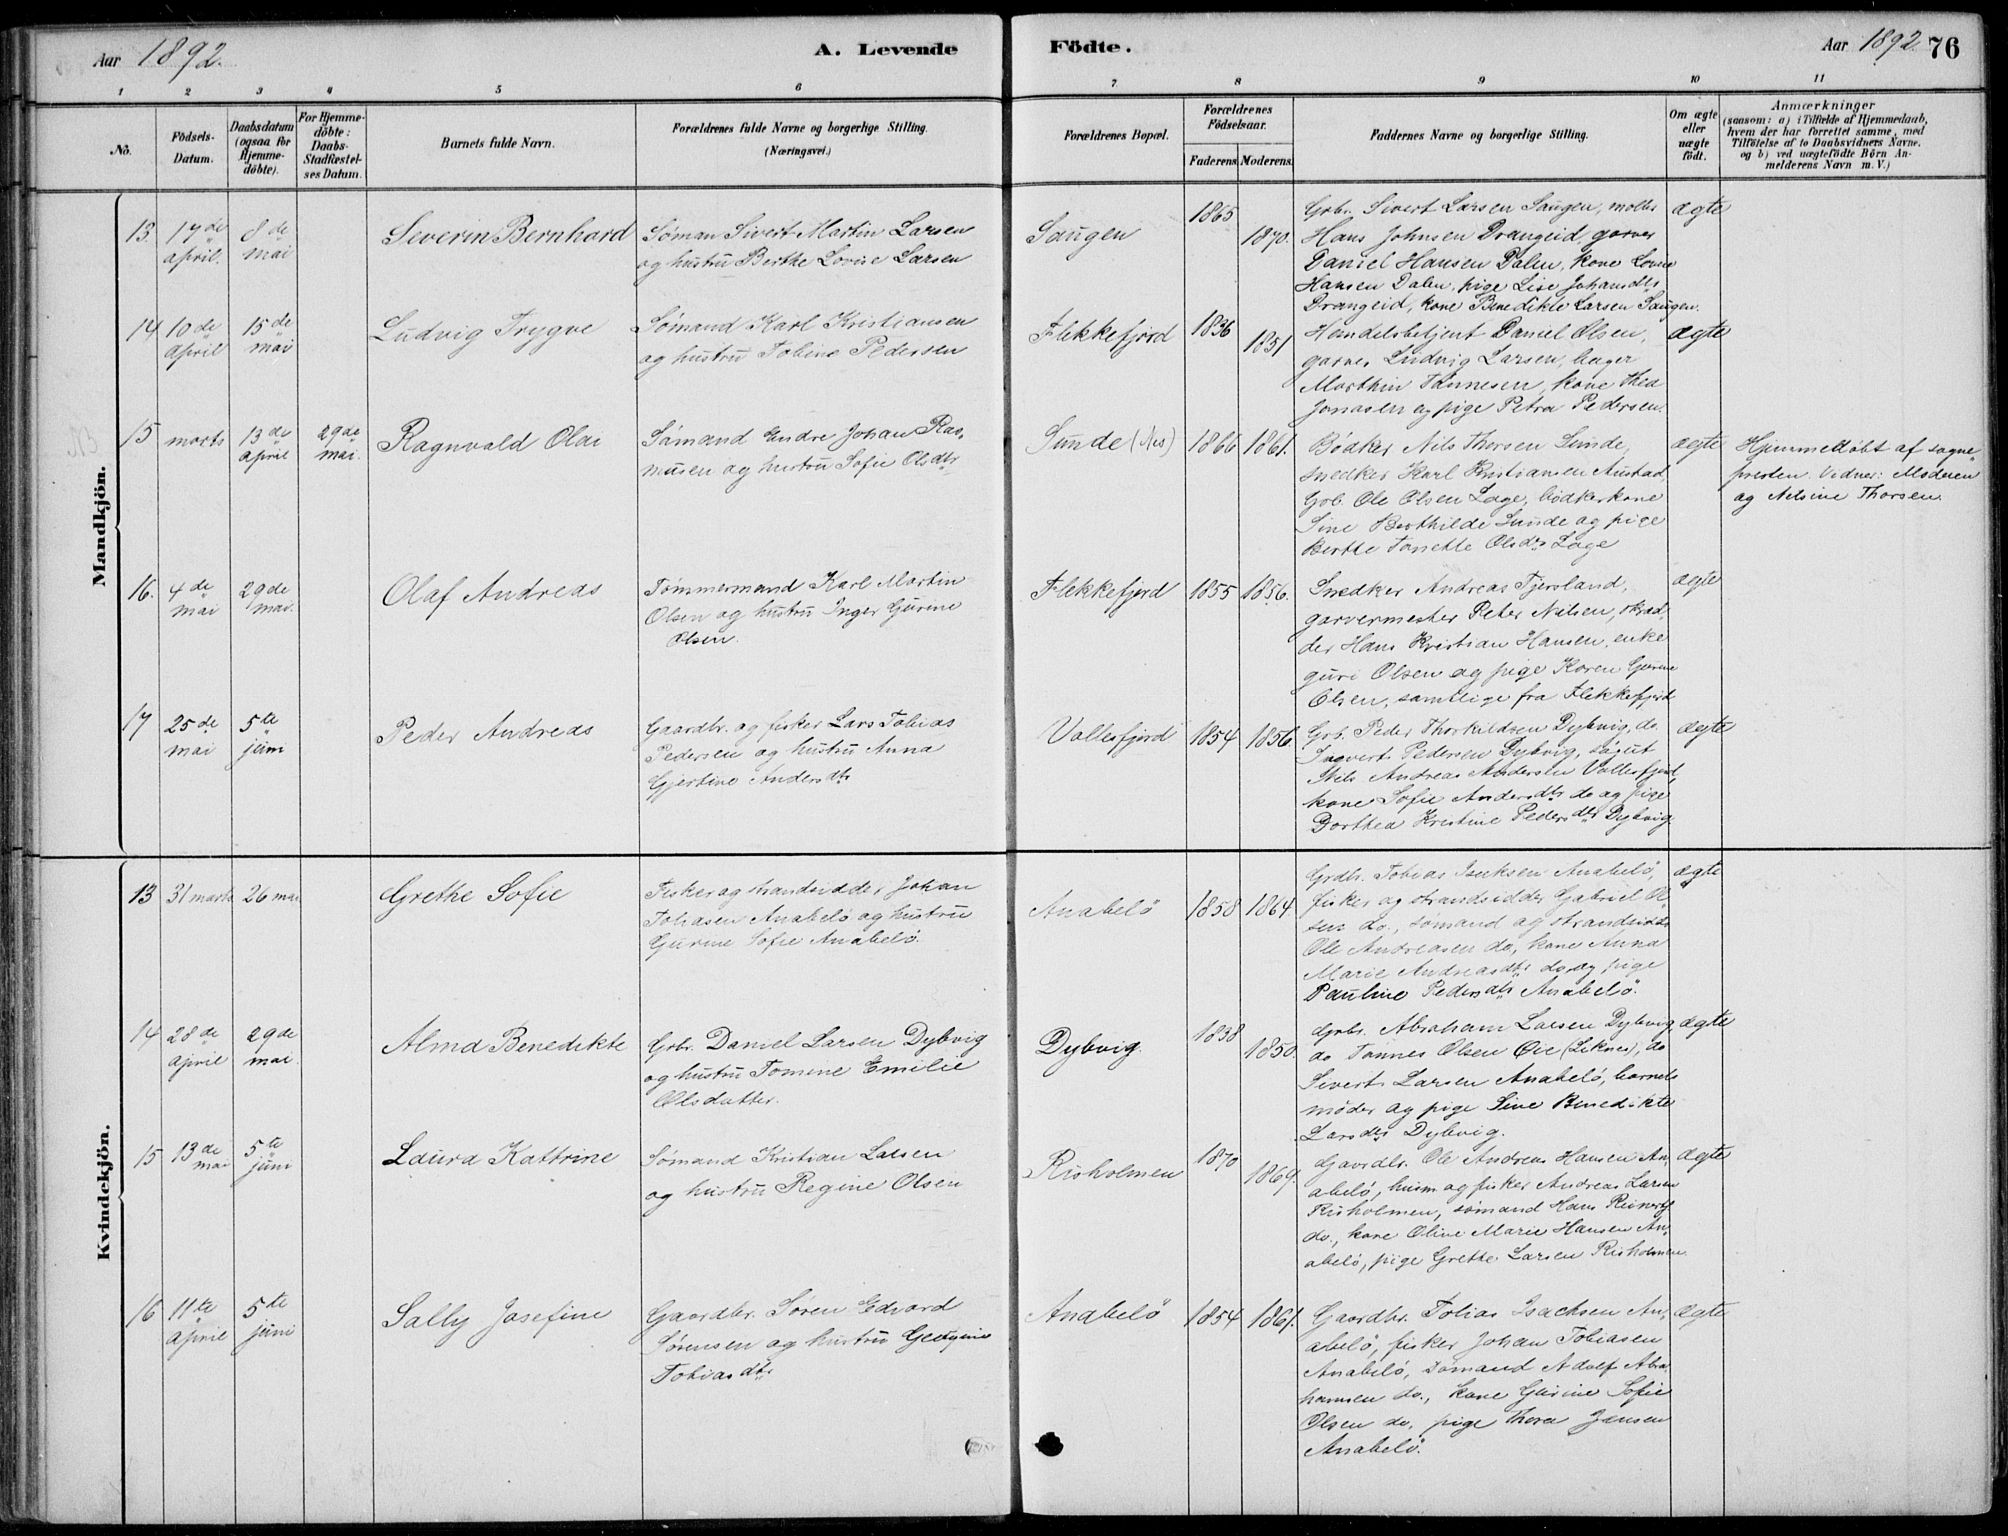 Aar 1892.
A. Levende
Födte.
Aar 1892 76
1 2 3 4 5 6 7 8 9 10 11
No.
Födsels-Datum.
Daabsdatum (ogsaa for Hjemme-döbte).
For Hjemme-döbte: Daabs-Stadfæstel-ses Datum.
Barnets fulde Navn.
Forældrenes fulde Navne og borgerlige Stilling.
(Næringsvei.)
Forældrenes Bopæl.
Forældrenes Födselsaar.
Faderens. Moderens.
Faddernes Navne og borgerlige Stilling.
Om ægte eller uægte födt.
Anmærkninger
(saasom: a) i Tilfælde af Hjemmedaab,
hvem der har forrettet samme, med
Tilföielse af to Daabsvidners Navne.
og b) ved uægtefödte Börn An-
melderens Navn m. V.)
Mandkjön.
13. 17de april. 8de mai
Severin Bernhard
Søman Sivert Martin Larsen
og hustru Berthe Lovise Larsen
Saugen
1865
1870.
Gbr. Sivert Larsen Saugen, møller
Hans Johnsen Drangeid, garver
Daniel Hansen Dalen, kone Lovise
Hansen Dalen, pige Lise Johansdtr
Drangeid, kone Benedikte Larsen Saugen.
ægte
14 10de april 15de mai
Ludvig Trygve
Sømand Karl Kristiansen
og hustru Tobine Pedersen
Flekkefjord
1836
1851
Handelsbetjent Daniel Olsen,
garver Ludvig Larsen, bager
Marthin Tønnesen, kone Thea
Jonasen og pige Petra Pedersen.
ægte
15 marts 13de april 29de mai.
Ragnvald Olai
Sømand Endre Johan Ras-
musen og hustru Sofie Olsdtr
Sunde (Nes)
1866 1861.
Bødker Nils Thorsen Sunde,
snedker Karl Kristiansen Austad,
Gbr. Ole Olsen Lage, bødkerkone
Sine Berthilde Sunde og pige
Berthe Tonette Olsdtr Lage
ægte
Hjemmedøbt af sogne-
presten. Vidner: Moderen
og Nelsine Thorsen.
16. 4de mai 29de mai.
Olaf Andreas
Tømmermand Karl Martin
Olsen og hustru Inger Gurine
Olsen.
Flekkefjord
1855 1856.
Snedker Andreas Tjersland,
garvermester Peter Nilsen, skræd-
der Hans Kristian Hansen, enke
guri Olsen og pige Karen Gurine
Olsen, samtlige fra Flekkefjord
ægte
17 25de mai 5te juni
Peder Andreas
Gaardbr. og fisker Lars Tobias
Pedersen og hustru Anna
Gjertine Andersdtr
Vollesfjord
1854 1856.
Gbr. Peder Thorkildsen Dybvig, do.
Ingvert Pedersen Dybvig, søgut
Nils Andreas Andersen Vollesfjord,
kone Sofie Andersdtr do og pige
Dorthea Kristine Pedersdtr Dybvig.
ægte
Kvindekjön.
13 31 marts 26 mai
Grethe Sofie
Fisker og strandsidder Johan
Tobiasen Anabelø og hustru
Gurine Sofie Anabelø.
Anabelø
1858 1864.
Grdbr. Tobias Isaksen Anabelø,
fisker og strandsidder Gabriel Ol-
sen do., sømand og strandsidder
Ole Andreasen do, kone Anna
Marie Andreasdtr do og pige
Pauline Pedersdtr Anabelø.
ægte
14 28de april 29de mai.
Alma Benedikte
Gbr. Daniel Larsen Dybvig
og hustru Tomine Emilie
Olsdatter.
Dybvig.
1838
1850.
Grbr. Abraham Larsen Dybvig,
do Tønnes Olsen Øie (Liknes), do
Sivert Larsen Anabelø, barnets
moder og pige Sine Benedikte
Larsdtr Dybvig.
ægte
15 13de mai 5te juni
Laura Kathrine
Sømand Kristian Larsen
og hustru Regine Olsen
Risholmen
1870
1869.
Gaardbr. Ole Andreas Hansen An-
abelø, husm og fisker Andreas Larsen
Risholmen, sømand Hans
do., kone Oline Marie Hansen An-
abelø, pige Grethe Larsen Risholmen.
ægte
16 11te april 5te juni
Sally Josefine
Gaardbr. Søren Edvard
Sørensen og hustru Georgine
Tobiasdtr
Anabelø
1854 1861.
Gaardbr. Tobias Isachsen An-
abelø, fisker Johan Tobiasen
Anabelø, Sømand Adolf Abra-
hamsen do., kone Gurine Sofie
Olsen do, pige Thora Jensen
Anabelø.
ægte